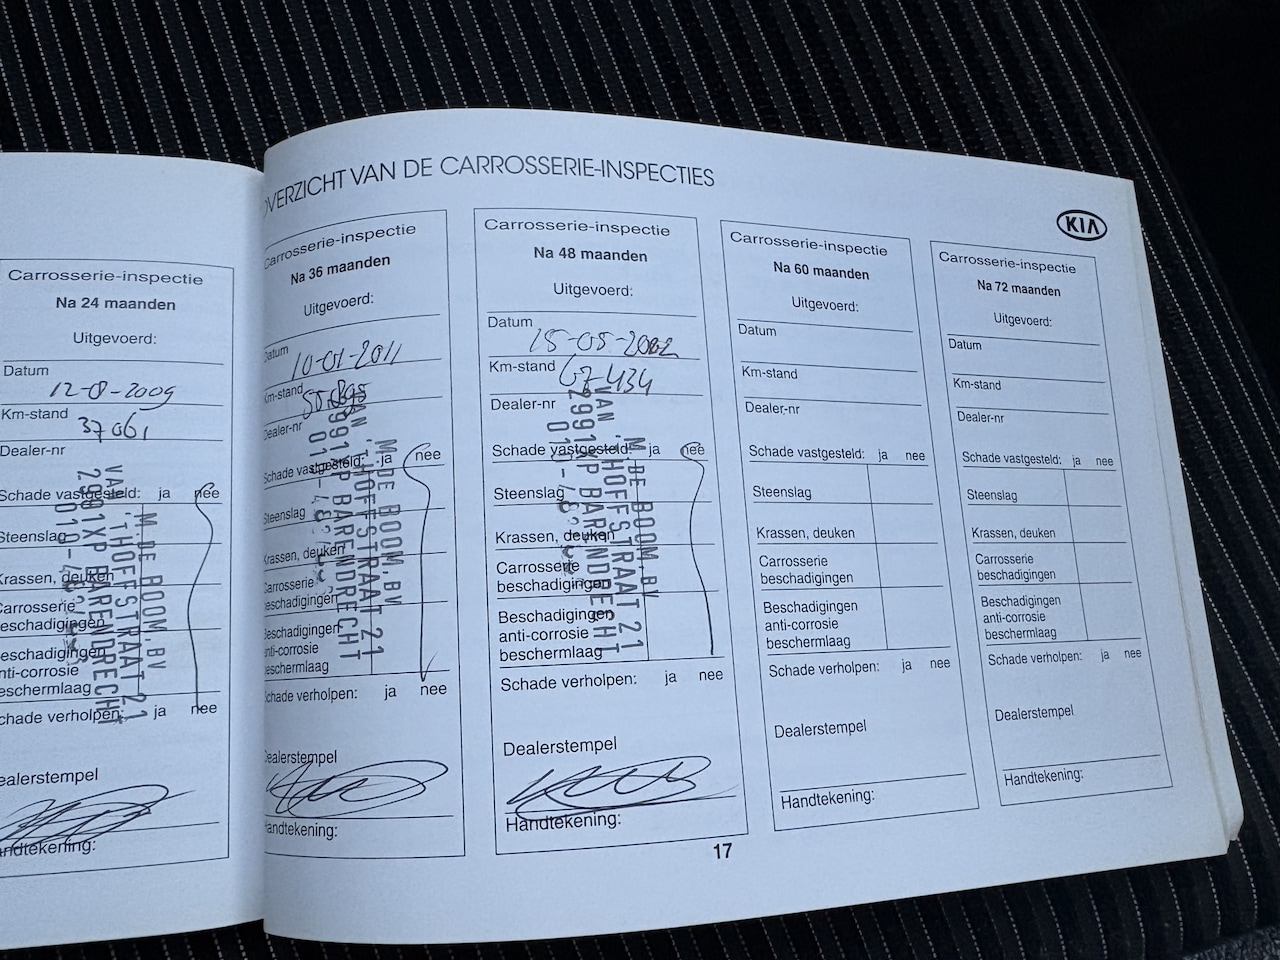 OVERZICHT VAN DE CARROSSERIE-INSPECTIES
KIA
Carrosserie-inspectie
Na 24 maanden
Uitgevoerd:
Datum
12-8-2009
Km-stand
37061
Dealer-nr
Schade vastgesteld: ja nee
Steenslag
Krassen, deuken
Carrosserie
beschadigingen
Beschadigingen
anti-corrosie
beschermlaag
Schade verholpen: ja nee
M. DE BOOM, BV
VAN 'T HOFFSTRAAT 21
2991XP BARENDRECHT
Dealerstempel
Handtekening:
Carrosserie-inspectie
Na 36 maanden
Uitgevoerd:
Datum
10-01-2011
Km-stand
Dealer-nr
Schade vastgesteld: ja nee
Steenslag
Krassen, deuken
Carrosserie
beschadigingen
Beschadigingen
anti-corrosie
beschermlaag
Schade verholpen: ja nee
M. DE BOOM, BV
VAN 'T HOFFSTRAAT 21
2991XP BARENDRECHT
Dealerstempel
Handtekening:
Carrosserie-inspectie
Na 48 maanden
Uitgevoerd:
Datum
Km-stand
67-434
Dealer-nr
Schade vastgesteld: ja nee
Steenslag
Krassen, deuken
Carrosserie
beschadigingen
Beschadigingen
anti-corrosie
beschermlaag
Schade verholpen: ja nee
M. DE BOOM, BV
VAN 'T HOFFSTRAAT 21
2991XP BARENDRECHT
Dealerstempel
Handtekening:
Carrosserie-inspectie
Na 60 maanden
Uitgevoerd:
Datum
Km-stand
Dealer-nr
Schade vastgesteld: ja nee
Steenslag
Krassen, deuken
Carrosserie
beschadigingen
Beschadigingen
anti-corrosie
beschermlaag
Schade verholpen: ja nee
Dealerstempel
Handtekening:
Carrosserie-inspectie
Na 72 maanden
Uitgevoerd:
Datum
Km-stand
Dealer-nr
Schade vastgesteld: ja nee
Steenslag
Krassen, deuken
Carrosserie
beschadigingen
Beschadigingen
anti-corrosie
beschermlaag
Schade verholpen: ja nee
Dealerstempel
Handtekening:
17